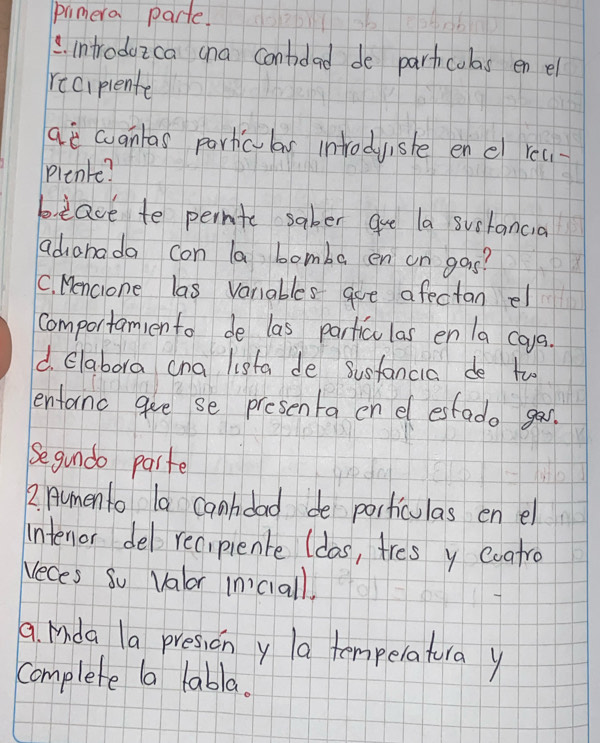 primera parte.
1. introduzca una cantidad de particulas en el
recipiente
a¿ cuántas partículas introdujiste en el reci-
piente?
b.¿qué te permite saber que la sustancia
adionada con la bomba en un gas?
c. Mencione las variables que afectan el
comportamiento de las partículas en la caja.
d. elabora una lista de sustancia de tu
entorno que se presenta en el estado gas.
Segundo parte
2. Aumento la cantidad de partículas en el
interior del recipiente (dos, tres y cuatro
veces su valor inicial).
a. mida la presión y la temperatura y
complete la tabla.